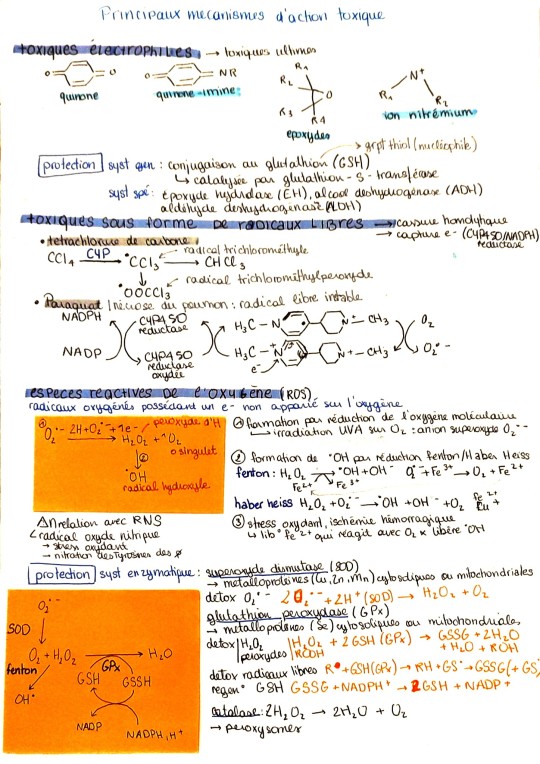 Principaux mecanismes d'action toxique
toxiques électrophiles → toxiques ultimes
O O O NR
quinone quinone-imine
R1 R2 O R3 R4
époxydes
N+ R1 R2
ion nitrémium
→ grpt thiol (nucléophile)
protection syst gen : conjugaison au glutathion (GSH)
↳ catalysée par glutathion-S-transférase
syst spé : époxyde hydrolase (EH), alcool deshydrogénase (ADH)
aldéhyde deshydrogenase (ALDH)
toxiques sous forme de radicaux libres → cassure homolytique
→ capture e- (CYP450/NADPH)
reductase
• tetrachlorure de carbone
CCl4 CYP → •CCl3 → CHCl3
radical trichlorométhyle
↓ radical trichlorométhylperoxyde
•OOCCl3
• Paraquat / nécrose du poumon : radical libre instable
NADPH CYP450 reductase H3C-N N+-CH3 O2
NADP CYP450 reductase oxydée H3C-N+ N+-CH3 O2•-
e-
especes reactives de l'oxygène (ROS)
radicaux oxygénés possédant un e- non apparié sur l'oxygène
① O2•- 2H+ O2•- + 1e- → H2O2 + ¹O2
peroxyde d'H
O singulet
②
•OH
radical hydroxyle
① formation par réduction de l'oxygène moléculaire
↳ irradiation UVA sur O2 : anion superoxyde O2•-
② formation de •OH par réduction fenton/Haber Heiss
fenton : H2O2 → •OH + OH- O2•- + Fe3+ → O2 + Fe2+
Fe2+ Fe3+
haber heiss H2O2 + O2•- → •OH + OH- + O2
③ stress oxydant, ischémie hémorragique
↳ lib° fe2+ qui réagit avec O2 × libère •OH
⚠ relation avec RNS
↳ radical oxyde nitrique
→ stress oxydant
→ nitration des tyrosines des
protection syst enzymatique : superoxyde dismutase (SOD)
→ métalloprotéines (Cu, Zn, Mn) cytosoliques ou mitochondriales
detox O2•- 2O2•- + 2H+ (SOD) → H2O2 + O2
glutathion peroxydase (GPx)
→ metalloprotéines (Se) cytosoliques ou mitochondriales
detox H2O2 H2O2 + 2GSH (GPx) → GSSG + 2H2O
peroxydes RODH + H2O + ROH
detox radicaux libres R• + GSH (GPx) → RH + GS• → GSSG (+ GS)
regen° GSH GSSG + NADPH+ → 2GSH + NADP+
catalase : 2H2O2 → 2H2O + O2
→ peroxysomes
O2•-
SOD
O2 + H2O2 → H2O
fenton GPx
GSH GSSH
OH•
NADP NADPH, H+